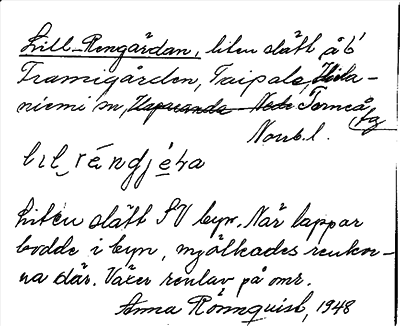 Lill-Rengärdan, liten slätt å b'
Framigården, Taipale, Hieta-
niemi sn, Haparanda Nede Torneå
Norrb.l. fg
lil réndjéɷa
Liten slätt SV byn. När lappar
bodde i byn, mjölkades renkor-
na där. Växer renlav på omr.
Anna Rönnquist, 1948